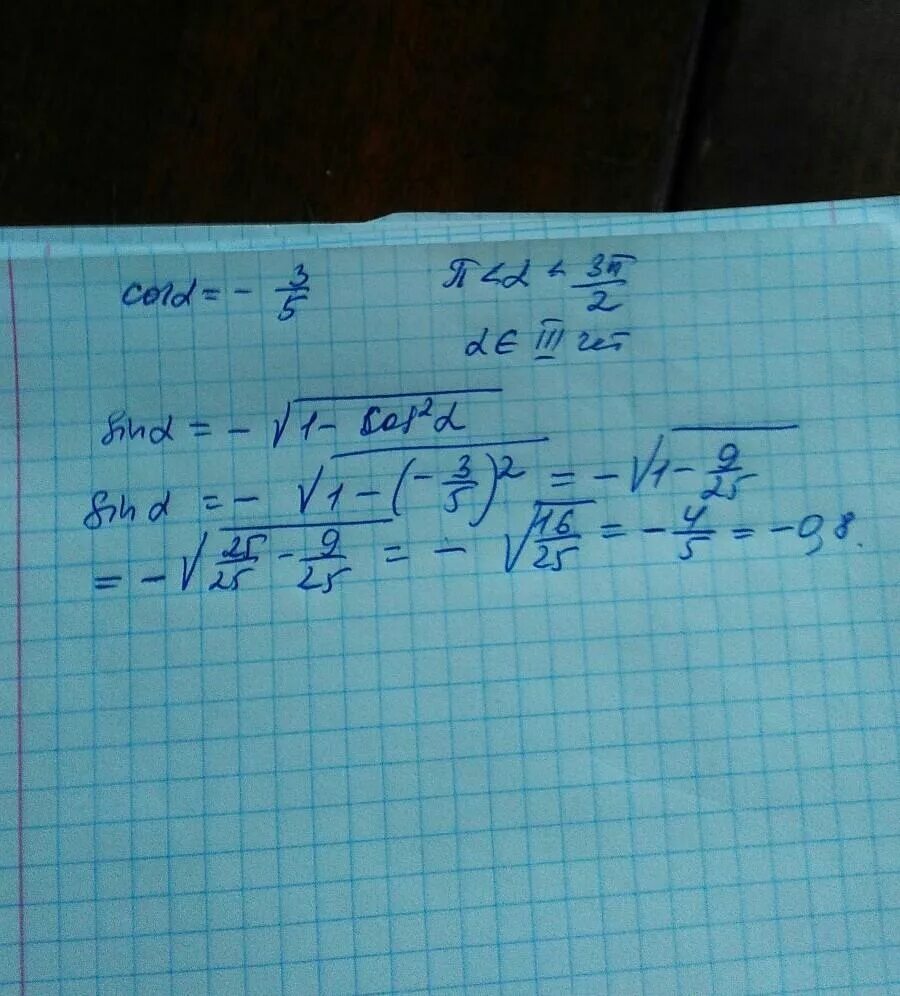 cos α = - 3/5 π < α < 3π/2
α ∈ III чет
sin α = - √(1 - cos² α)
sin α = - √(1 - (- 3/5)²) = - √(1 - 9/25)
= - √(25/25 - 9/25) = - √(16/25) = - 4/5 = - 0,8.